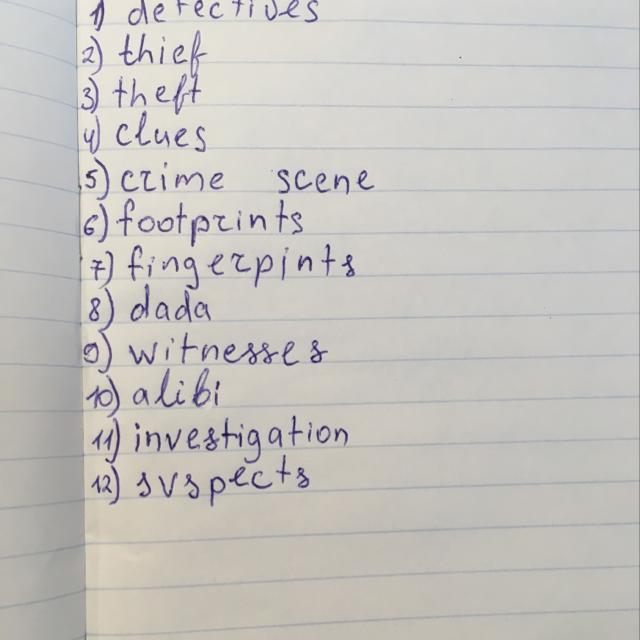 1) detectives
2) thief
3) theft
4) clues
5) crime scene
6) footprints
7) fingerpints
8) dada
9) witnesses
10) alibi
11) investigation
12) svspects